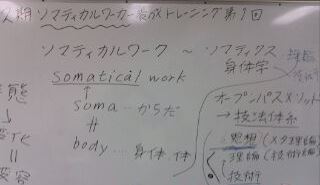 期 ソマティカルワーカー養成トレーニング第9回
ソマティカルワーク ～ ソマティクス
身体学
somatical work
↑
soma …からだ
♯
body … 身体、体
オープンパスメソッド
→ 技法体系
思想 (メタ理論)
理論 (技術論)
技術
態
↓
変化
॥
変容